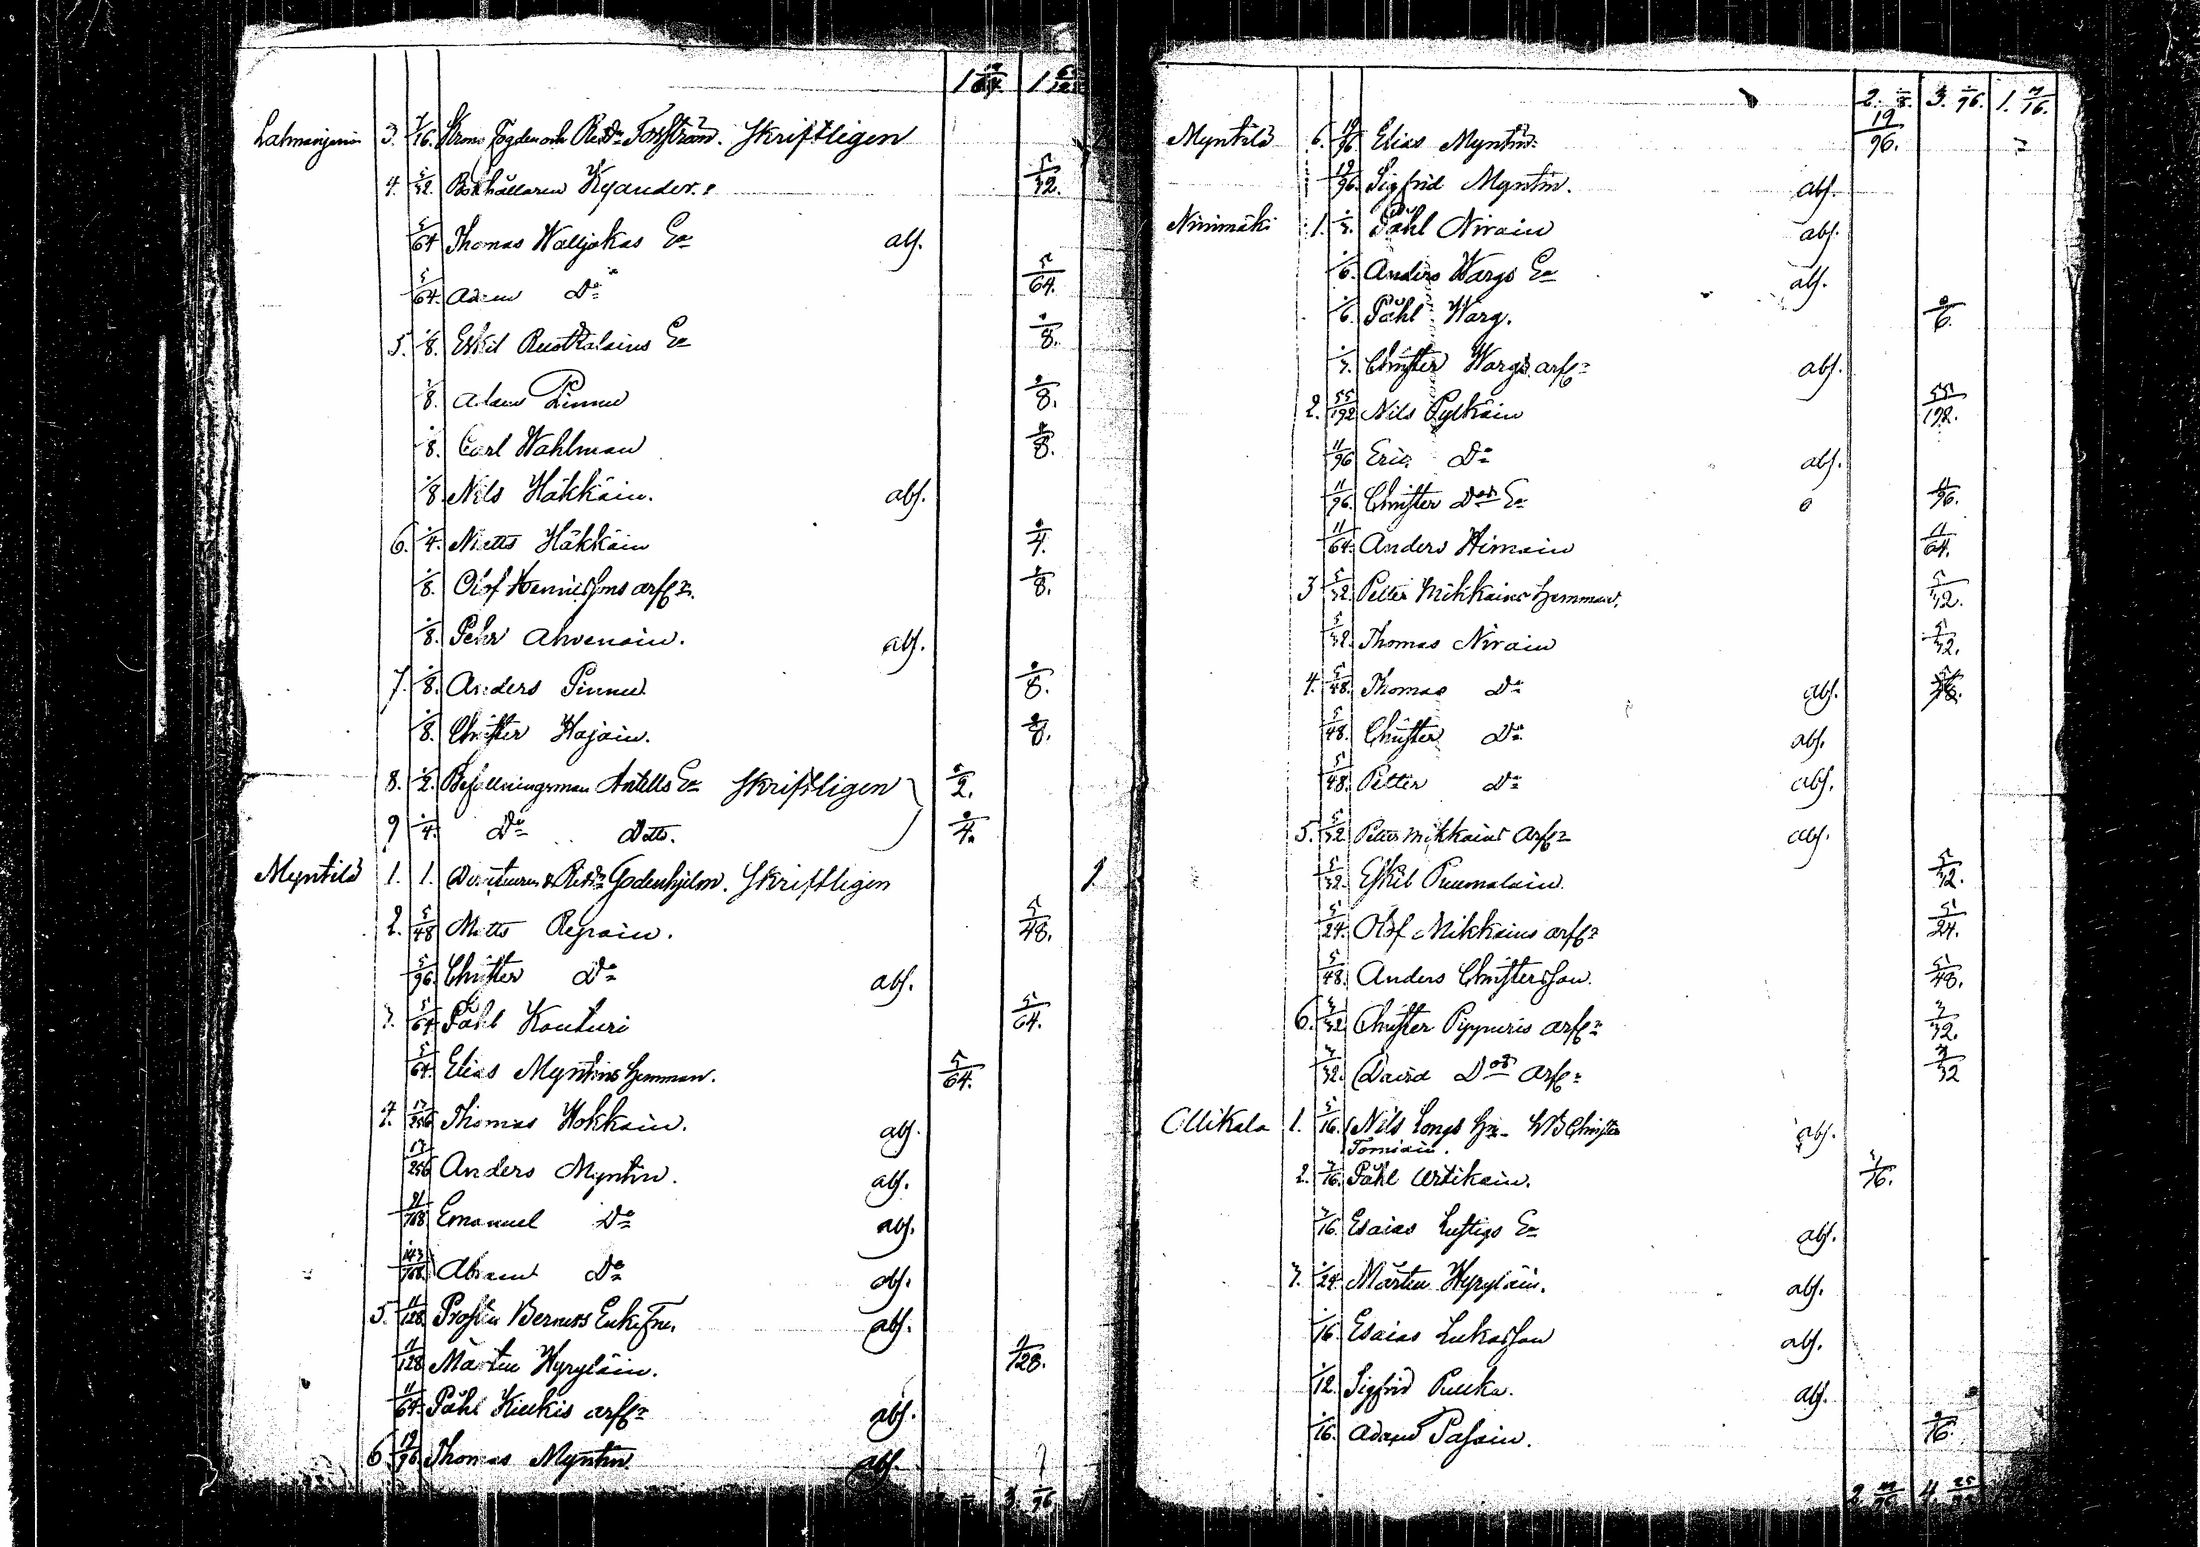 1 1
3. 7/16. Krono Fogden och Ridd. Forsström. Skriftligen
4. 5/32. Bokhållaren Kyander. 5/32.
5/64 Thomas Walljakas En abs.
5/64. Adam Do 5/64.
5. 1/8. Eskil Ruotkalains En 1/8.
1/8. Adam Pinnu 1/8.
1/8. Carl Wahlman 1/8.
1/8 Nils Häkkäin. abs.
6. 1/4. Matts Häkkäin 1/4.
1/8. Olof arfr. 1/8.
1/8. Pehr Ahvenain. abs.
7. 1/8. Anders Pinnu 1/8.
1/8. Christer Hajain. 1/8.
8. 1/2. Befallningsman Antells En Skriftligen 1/2.
9 1/4. Do Ditto. 1/4.
Myntilä 1. 1. Ridd. Godenhjelm. Skriftligen 1
2. 5/48 Matts Repoin. 5/48.
5/96. Christer Do abs.
3. 5/64 Påhl Kouturi 5/64.
5/64. Elias Myntins hemman. 5/64.
4. 13/256 Thomas Hokkain. abs.
13/256 Anders Myntin. abs.
Emanuel Do abs.
143/768. Abram Do abs.
5. 11/128. Prosten Berners Enke Fru. abs.
11/128 Mårten Hyryläin. 11/128.
11/64. Påhl Kiukis arfr abs.
6 19/96 Thomas Myntin abs.
3. 1/96.
2. 1/8. 3. 1/96. 1. 7/16.
Myntilä 6. 19/96 Elias Myntin. 19/96.
19/96. Sigfrid Myntin. abs.
Niinimäki 1. 1/3. Påhl Nirain abs.
1/6. Anders Wargs En abs.
1/6. Påhl Warg. 1/6.
1/3. Christer Wargs arfr abs.
2. 55/192 Nils Pylkäin 55/192.
11/96 Eric Do abs.
11/96. Christer Dos En 11/96.
11/64. Anders Himain 11/64.
3 5/32. Petter Mikkains hemman. 5/32.
5/32. Thomas Nirain 5/32.
4. 5/48. Thomas Do abs.
5/48. Christer Do abs.
5/48. Petter Do abs.
5. 5/32 Petter Mikkains Arfr abs.
5/32. Eskil Puumalain. 5/32.
5/24. Olof Mikkains arfr 5/24.
5/48. Anders Christersson. 5/48.
6. 3/32 Christer Pippuris arfr 3/32.
3/32. David Dos arfr 3/32
Ollikala 1. 5/16. Nils Longs Christer abs.
Torniain.
2. 3/16. Påhl Urtikain. 3/16.
3/16. Esaias Lustigs En abs.
3. 1/24. Mårten Hyryläin. abs.
1/16. Esaias Lukasson abs.
1/12. Sigfrid Pulkka. abs.
1/16. Adam Pasain. 1/16.
2. 4.